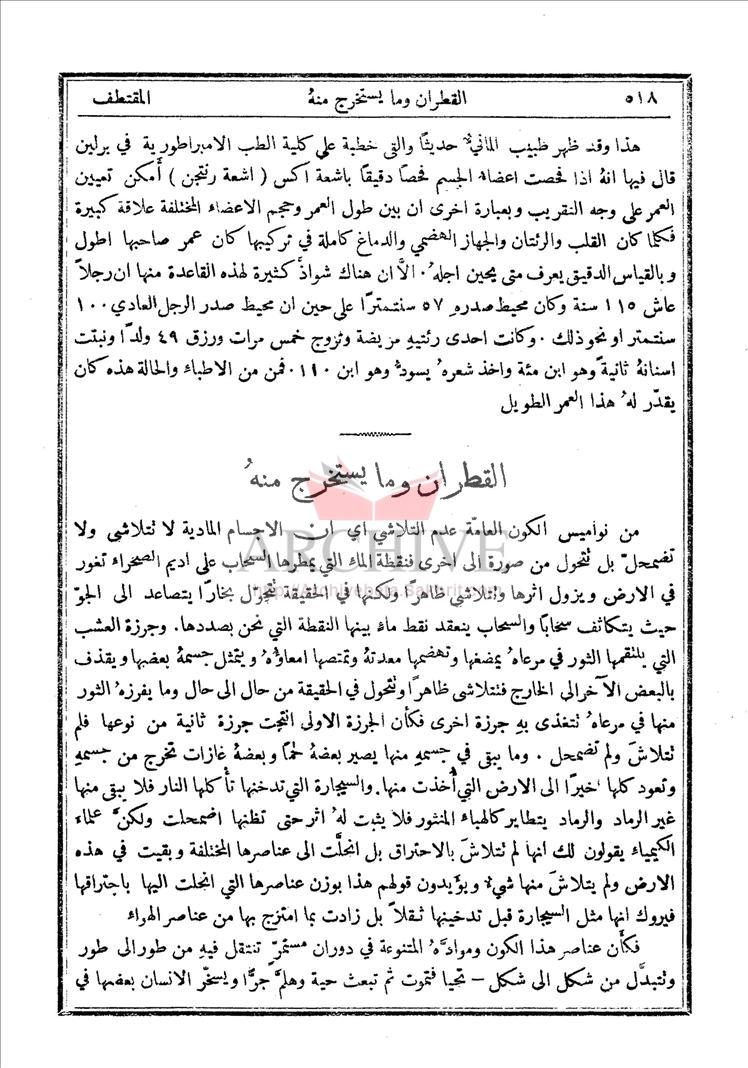 ٥١٨ القطران وما يستخرج منهُ المقتطف
هذا وقد ظهر طبيب المانيٌّ حديثًا والقى خطبة على كلية الطب الامبراطورية في برلين
قال فيها انهُ اذا فحصت اعضاء الجسم فحصًا دقيقًا باشعة اكس ( اشعة رنتجن ) أمكن تعيين
العمر على وجه التقريب وبعبارة اخرى ان بين طول العمر وحجم الاعضاء المختلفة علاقة كبيرة
فكلما كان القلب والرئتان والجهاز الهضمي والدماغ كاملة في تركيبها كان عمر صاحبها اطول
وبالقياس الدقيق يعرف متى يحين اجلهُ . الاَّ ان هناك شواذَّ كثيرة لهذه القاعدة منها ان رجلاً
عاش ١١٥ سنة وكان محيط صدرهِ ٥٧ سنتمترًا على حين ان محيط صدر الرجل العادي ١٠٠
سنتمتر او نحو ذلك . وكانت احدى رئتيهِ مريضة وتزوج خمس مرات ورزق ٤٩ ولدًا ونبتت
اسنانهُ ثانيةً وهو ابن مئة واخذ شعرهُ يسودُّ وهو ابن ١١٠ . فمن من الاطباء والحالة هذه كان
يقدّر لهُ هذا العمر الطويل
القطران وما يستخرج منهُ
من نواميس الكون العامّة عدم التلاشي اي ان الاجسام المادية لا تتلاشى ولا
تضمحلّ بل تتحول من صورة الى اخرى فنقطة الماء التي يمطرها السحاب على اديم الصحراء تغور
في الارض ويزول اثرها وتتلاشى ظاهرًا ولكنها في الحقيقة تتحوّل بخارًا يتصاعد الى الجوّ
حيث يتكاثف سحابًا والسحاب ينعقد نقط ماء بينها النقطة التي نحن بصددها. وجرزة العشب
التي يلتقمها الثور في مرعاهُ يمضغها وتهضمها معدتهُ وتمتصها امعاؤُهُ ويتمثل جسمهُ بعضها ويقذف
بالبعض الآخر الى الخارج فتتلاشى ظاهرًا وتتحول في الحقيقة من حال الى حال وما يفرزهُ الثور
منها في مرعاهُ تتغذى بهِ جرزة اخرى فكأن الجرزة الاولى انتجت جرزة ثانية من نوعها فلم
تتلاشَ ولم تضمحل . وما يبقى في جسمهِ منها يصير بعضهُ لحمًا وبعضهُ غازات تخرج من جسمهِ
وتعود كلها اخيرًا الى الارض التي أُخذت منها. والسيجارة التي تدخنها تأكلها النار فلا يبقى منها
غير الرماد والرماد يتطاير كالهباء المنثور فلا يثبت لهُ اثر حتى تظنها اضمحلت ولكنَّ علماء
الكيمياء يقولون لك انها لم تتلاشَ بالاحتراق بل انحلَّت الى عناصرها المختلفة وبقيت في هذه
الارض ولم يتلاشَ منها شيءٌ ويؤيدون قولهم هذا بوزن عناصرها التي انحلت اليها باحتراقها
فيروك انها مثل السيجارة قبل تدخينها ثقلاً بل زادت بما امتزج بها من عناصر الهواء
فكأن عناصر هذا الكون وموادَّهُ المتنوعة في دوران مستمرّ تنتقل فيهِ من طور الى طور
وتتبدَّل من شكل الى شكل – تحيا فتموت ثم تبعث حية وهلمَّ جرًّا ويسخّر الانسان بعضها في
ARCHIVE